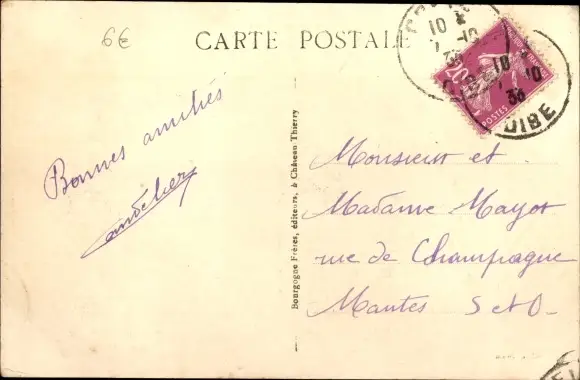 6€
CARTE POSTALE
10
7 -10
36
20c
POSTES
10
36
Bonnes amitiés
Bourgogne Frères, éditeurs, à Château-Thierry
Monsieur et
Madame Mayot
rue de Champagne
Mantes S et O-